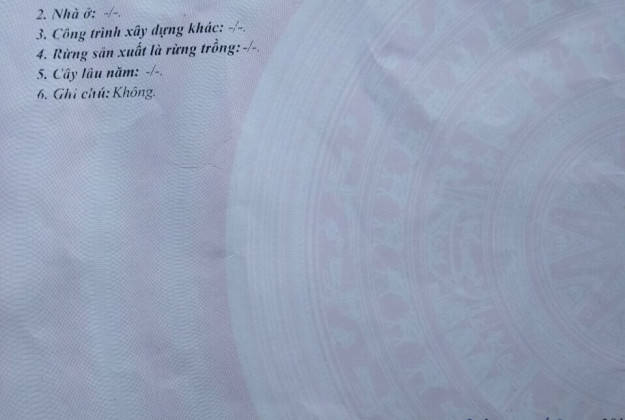 2. Nhà ở: -/-.
3. Công trình xây dựng khác: -/-.
4. Rừng sản xuất là rừng trồng: -/-.
5. Cây lâu năm: -/-.
6. Ghi chú: Không.